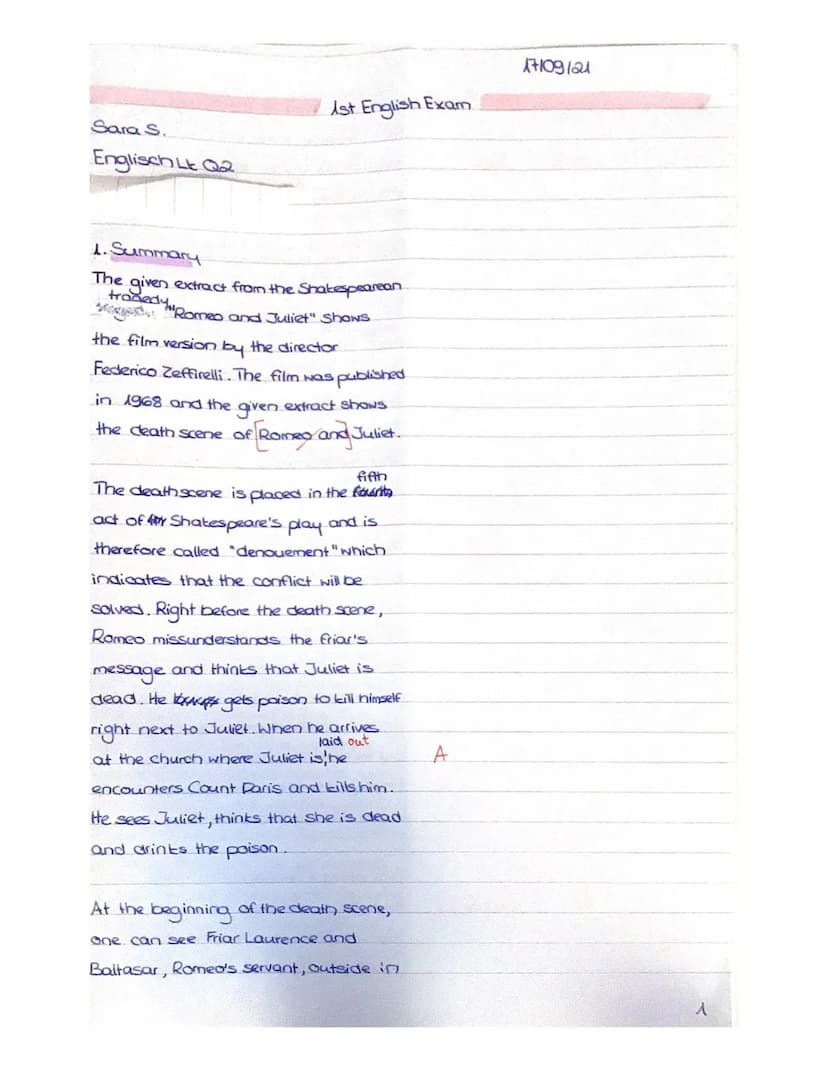 17/09/21
1st English Exam
Sara S.
Englisch Lk Q2
1. Summary
The given extract from the Shakespearean
tragedy
"Romeo and Juliet" shows
the film version by the director
Federico Zeffirelli. The film was published
in 1968 and the given extract shows
the death scene of [Romeo and] Juliet.
fifth
The death scene is placed in the fourth
act of Shakespeare's play and is
therefore called "denouement" which
indicates that the conflict will be
solved. Right before the death scene,
Romeo missunderstands the friar's
message and thinks that Juliet is
dead. He gets poison to kill himself
right next to Juliet. When he arrives
laid out
at the church where Juliet is, he
A
encounters Count Paris and kills him.
He sees Juliet, thinks that she is dead
and drinks the poison.
At the beginning of the death scene,
one can see Friar Laurence and
Baltasar, Romeo's servant, outside in
1